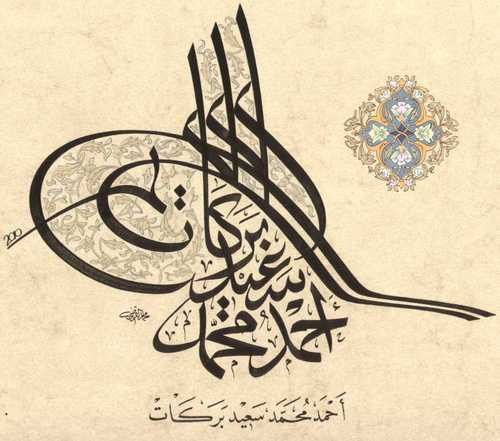 أحمد محمد سعيد بركات
أَحْمَدْ مُحَمَّدْ سَعِيدْ بَرَكَاتْ